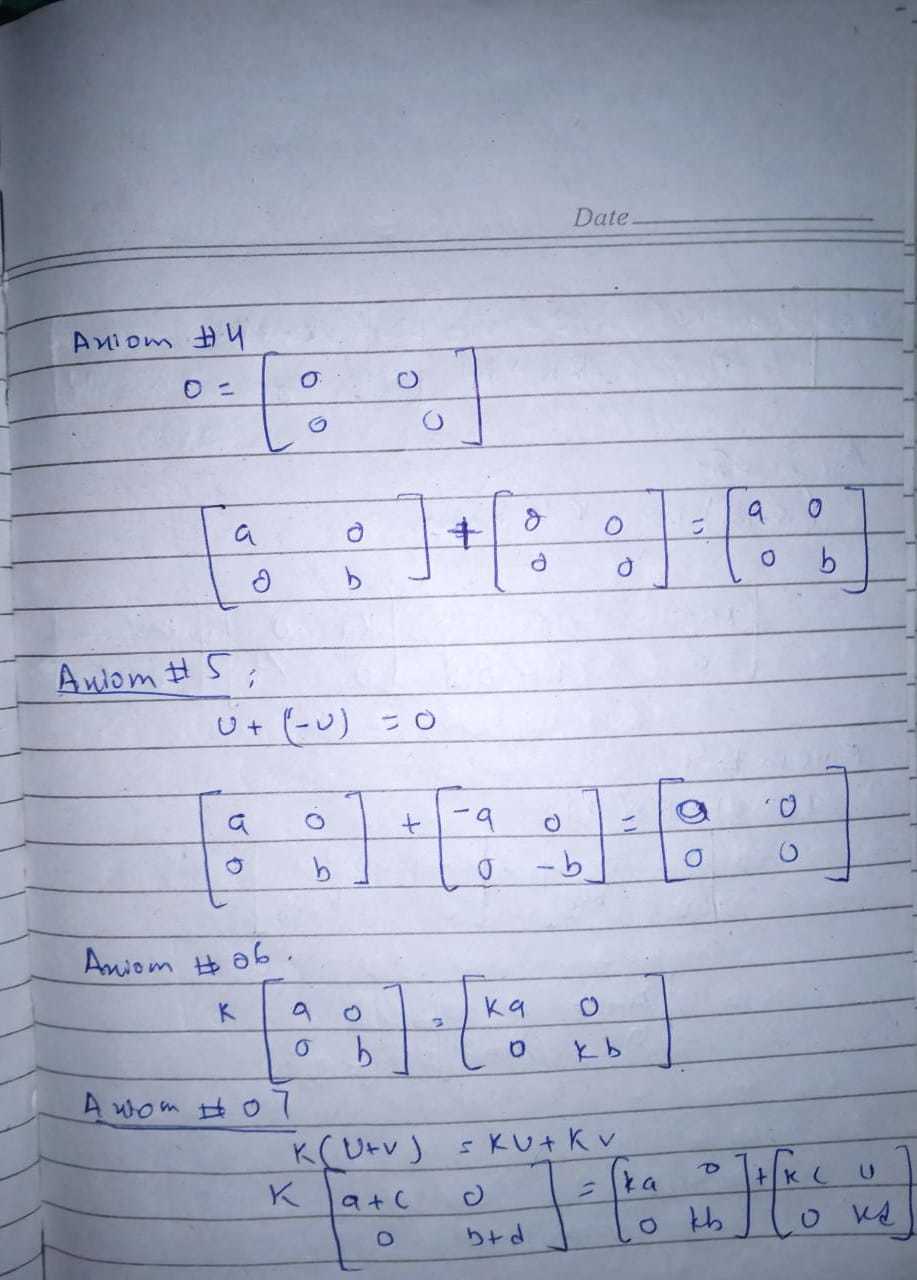 Date
Axiom #4
0 = [ 0 0
0 0 ]
[ a 0
0 b ] + [ 0 0
0 0 ] = [ a 0
0 b ]
Axiom # 5 ;
U + (-U) = 0
[ a 0
0 b ] + [ -a 0
0 -b ] = [ 0 0
0 0 ]
Axiom # 06.
K [ a 0
0 b ] = [ Ka 0
0 Kb ]
Axiom # 07
K(U+V) = KU + KV
K [ a+c 0
0 b+d ] = [ ka 0
0 kb ] + [ kc 0
0 kd ]